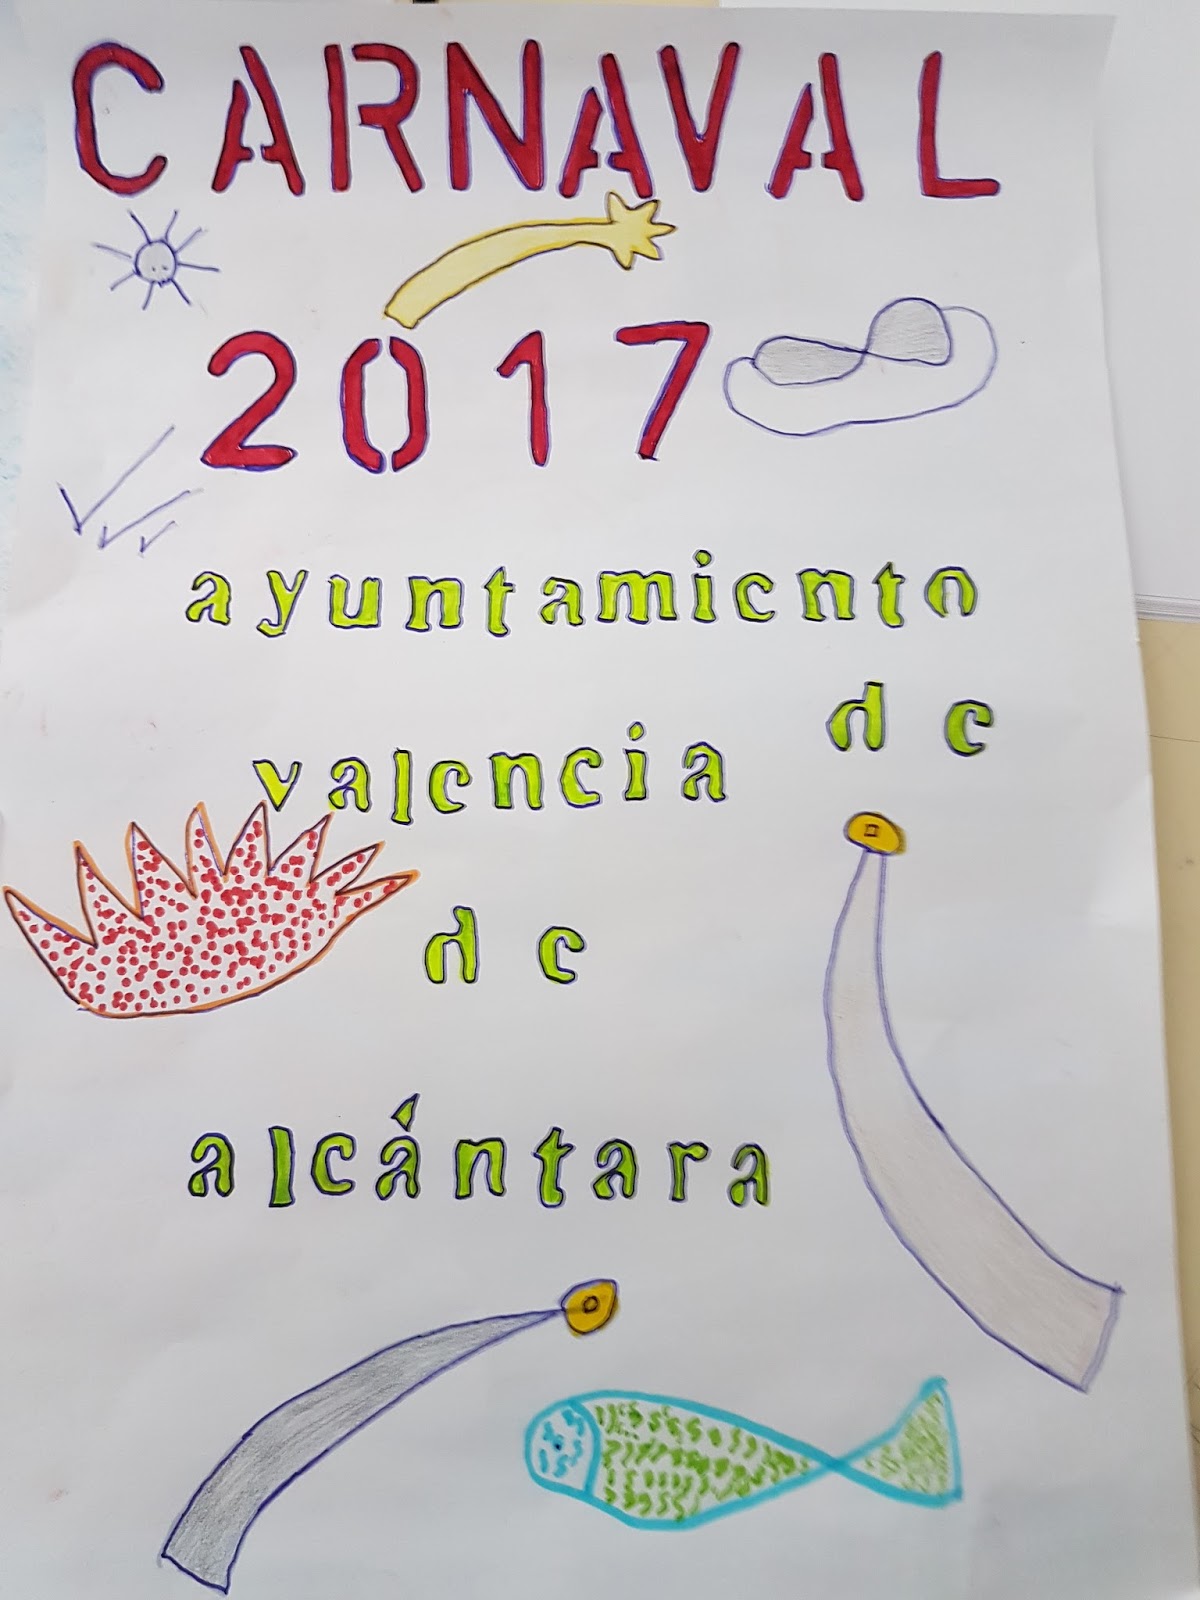 CARNAVAL
2017
ayuntamiento
de
valencia
de
alcántara